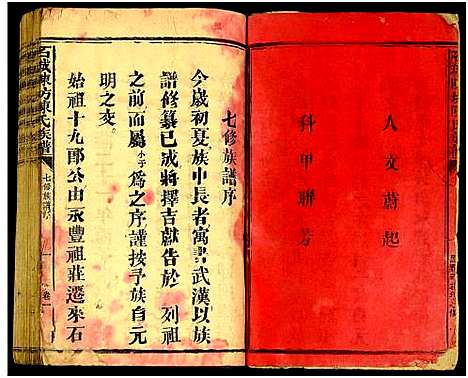 人文蔚起
科甲聯芳
七修族譜序
今歲初夏族中長者寓書武漢以族
譜修纂已成將擇吉獻告於 列祖
之前而屬 小子 為之序謹按予族自元
明之交
始祖十九郎公由永豐祖莊遷來石
石城陳坊陳氏族譜
七修族譜序
一
卷一